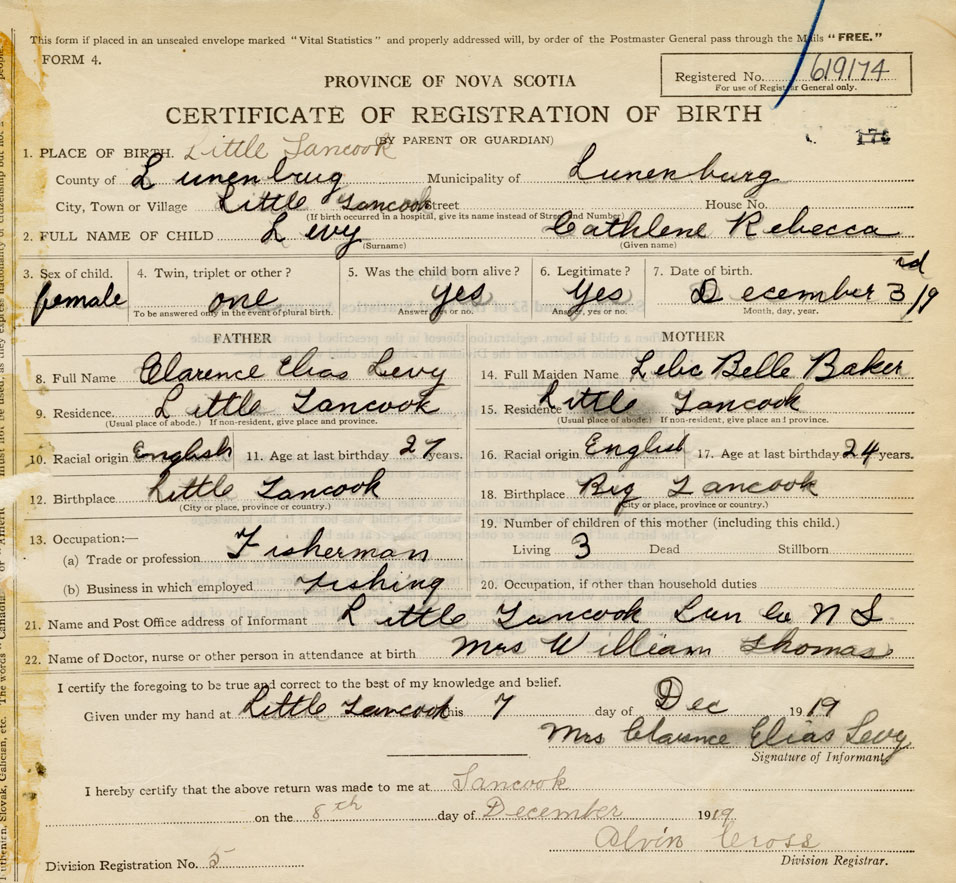 This form if placed in an unsealed envelope marked "Vital Statistics" and properly addressed will, by order of the Postmaster General pass through the Mails "FREE."
FORM 4.
Registered No. 619174
For use of Registrar General only.
PROVINCE OF NOVA SCOTIA
CERTIFICATE OF REGISTRATION OF BIRTH
(BY PARENT OR GUARDIAN)
174
1. PLACE OF BIRTH. Little Tancook
County of Lunenbrug Municipality of Lunenburg
City, Town or Village Little Tancook Street House No.
(If birth occurred in a hospital, give its name instead of Street and Number)
2. FULL NAME OF CHILD Levy Cathlene Rebecca
(Surname) (Given name)
3. Sex of child. 4. Twin, triplet or other? 5. Was the child born alive? 6. Legitimate? 7. Date of birth.
female one yes yes December 3rd/19
To be answered only in the event of plural birth. Answer, yes or no. Answer, yes or no. Month, day, year.
FATHER MOTHER
8. Full Name Clarence Elias Levy 14. Full Maiden Name Belle Baker
9. Residence Little Tancook 15. Residence Little Tancook
(Usual place of abode.) If non-resident, give place and province. (Usual place of abode.) If non-resident, give place and province.
10. Racial origin English 11. Age at last birthday 27 years. 16. Racial origin English 17. Age at last birthday 24 years.
12. Birthplace Little Tancook 18. Birthplace Big Tancook
(City or place, province or country.) (City or place, province or country.)
13. Occupation:— 19. Number of children of this mother (including this child.)
(a) Trade or profession Fisherman Living 3 Dead Stillborn
(b) Business in which employed Fishing 20. Occupation, if other than household duties
21. Name and Post Office address of Informant Little Tancook Lun Co N S
22. Name of Doctor, nurse or other person in attendance at birth Mrs William Thomas
I certify the foregoing to be true and correct to the best of my knowledge and belief.
Given under my hand at Little Tancook this 7 day of Dec 1919
Mrs Clarence Elias Levy
Signature of Informant.
I hereby certify that the above return was made to me at Tancook
on the 8th day of December 1919.
Alvin Cross
Division Registrar.
Division Registration No. 5